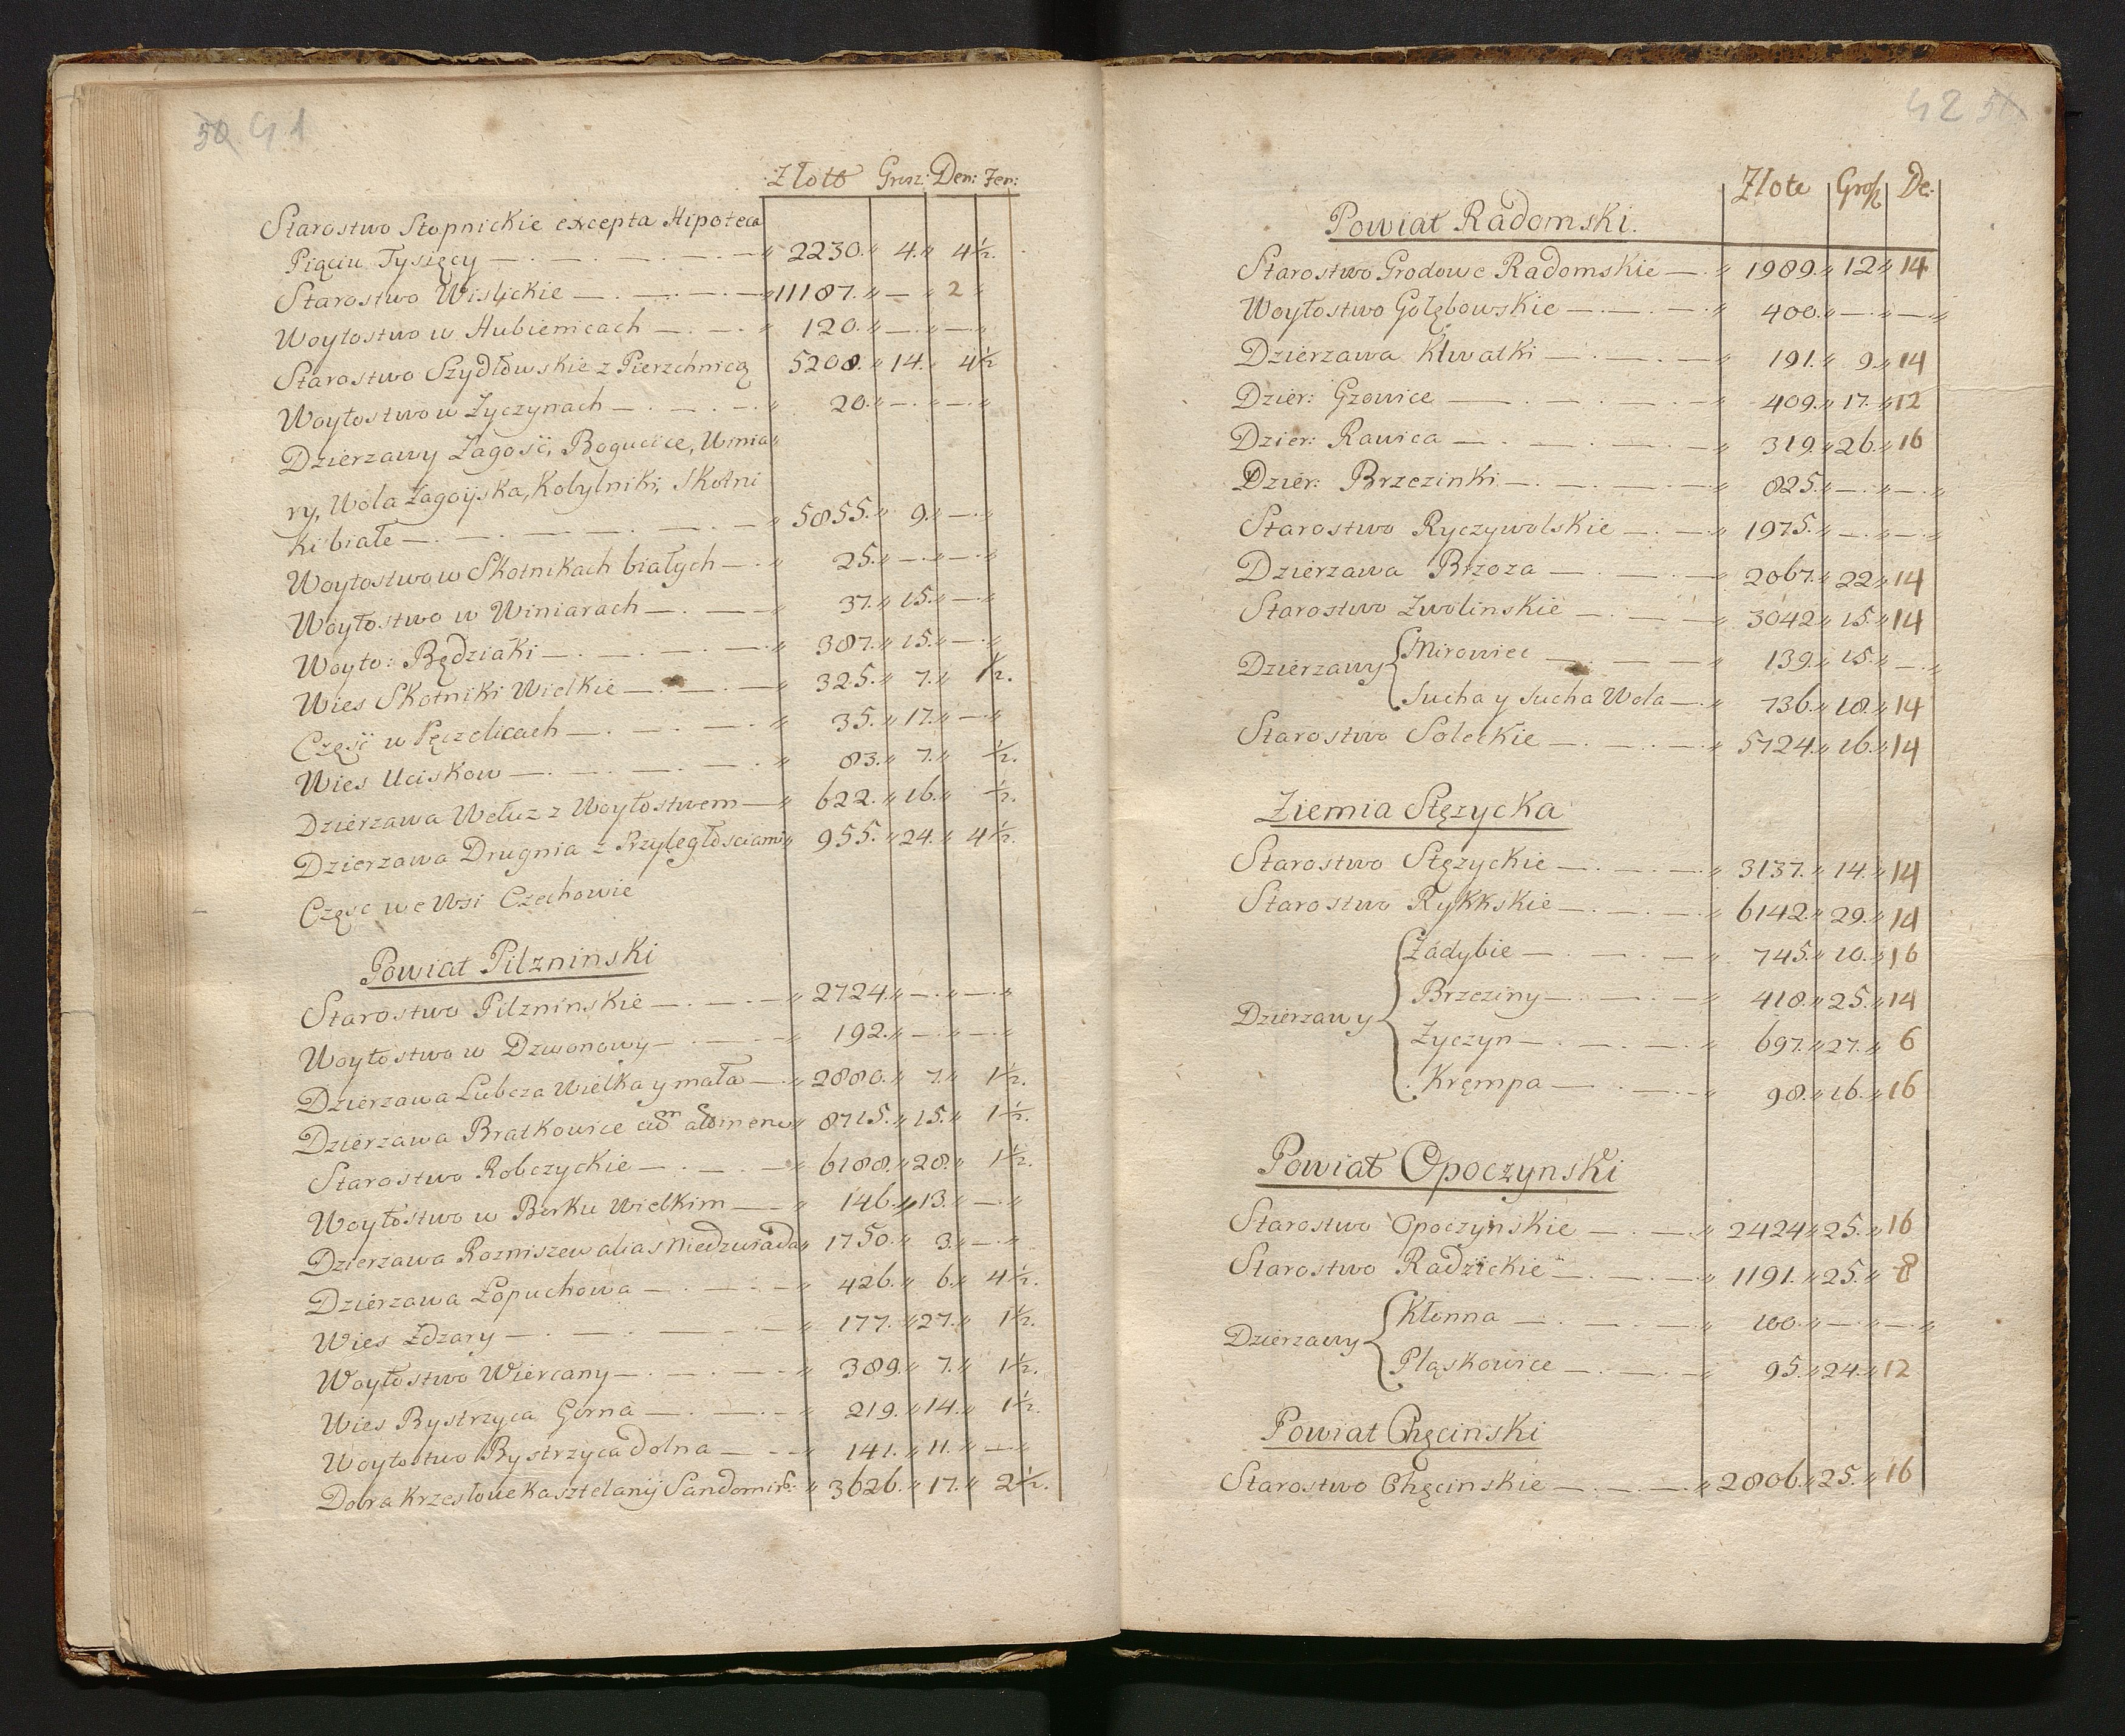 50 41
Złote Grosz: Den: Fen:
Starostwo Stopnickie excepta Hipoteca
Pięciu Tysięcy — 2230. 4. 4½.
Starostwo Wislickie — 11187. — 2
Woytostwo w Hubienicach — 120. — —
Starostwo Szydłowskie z Pierzchnicą 5208. 14. 4½
Woytostwo w Zyczynach — 20. — —
Dzierzawy Zagość, Bogucice, Winia
ry, Wola Zagoyska, Kobylniki, Skotni
ki białe — 5855. 9. —
Woytostwo w Skotnikach białych — 25. — —
Woytostwo w Winiarach — 37. 15. —
Woyto: Będziaki — 387. 15. —
Wies Skotniki Wielkie — 325. 7. ½.
Część w Pęczelicach — 35. 17. —
Wies Uciskow — 83. 7. ½.
Dzierzawa Wełuz z Woytostwem — 622. 16. ½.
Dzierzawa Drugnia z Przyległosciami 955. 24. 4½.
Częsc we Wsi Czechowie
Powiat Pilzninski
Starostwo Pilzninskie — 2724. — —
Woytostwo w Dzwonowy — 192. — —
Dzierzawa Lubcza Wielka y mała — 2880. 7. 1½.
Dzierzawa Bratkowice 8715. 15. 1½.
Starostwo Robczyckie — 6188. 28. 1½.
Woytostwo w Borku Wielkim — 146. 13. —
Dzierzawa Rozniszew alias Niedzwiada 1750. 3. —
Dzierzawa Łopuchowa — 426. 6. 4½.
Wies Zdzary — 177. 27. 1½.
Woytostwo Wiercany — 389. 7. 1½.
Wies Bystrzyca Gorna — 219. 14. 1½.
Woytostwo Bystrzyca dolna — 141. 11. —
Dobra krzesłowe Kasztelanij Sandomirs: 3626. 17. 2½.
42 51
Złote Grosz De:
Powiat Radomski.
Starostwo Grodowe Radomskie — 1989. 12 14
Woytostwo Gołębowskie — 400. — —
Dzierzawa Klwatki — 191. 9. 14
Dzier: Gzowice — 409. 17. 12
Dzier: Rawica — 319. 26. 16
Dzier: Brzezinki — 825. — —
Starostwo Ryczywolskie — 1975. — —
Dzierzawa Brzoza — 2067. 22 14
Starostwo Zwolinskie — 3042 15. 14
Dzierzawy { Mirowiec — 139. 15. —
Sucha y Sucha Wola — 736. 18. 14
Starostwo Soleckie — 5724. 16. 14
Ziemia Stęzycka
Starostwo Stęzyckie — 3137. 14. 14
Starostwo Rykkskie — 6142. 29. 14
Dzierzawy { Zadybie — 745. 10. 16
Brzeziny — 418. 25. 14
Zyczyn — 697. 27. 6
Krempa — 98. 16. 16
Powiat Opoczynski
Starostwo Opoczynskie — 2424 25. 16
Starostwo Radzickie — 1191. 25. 8
Dzierzawy { Kłonna — 100. — —
Pląskowice — 95. 24. 12
Powiat Chęcinski
Starostwo Chęcinskie — 2806. 25. 16